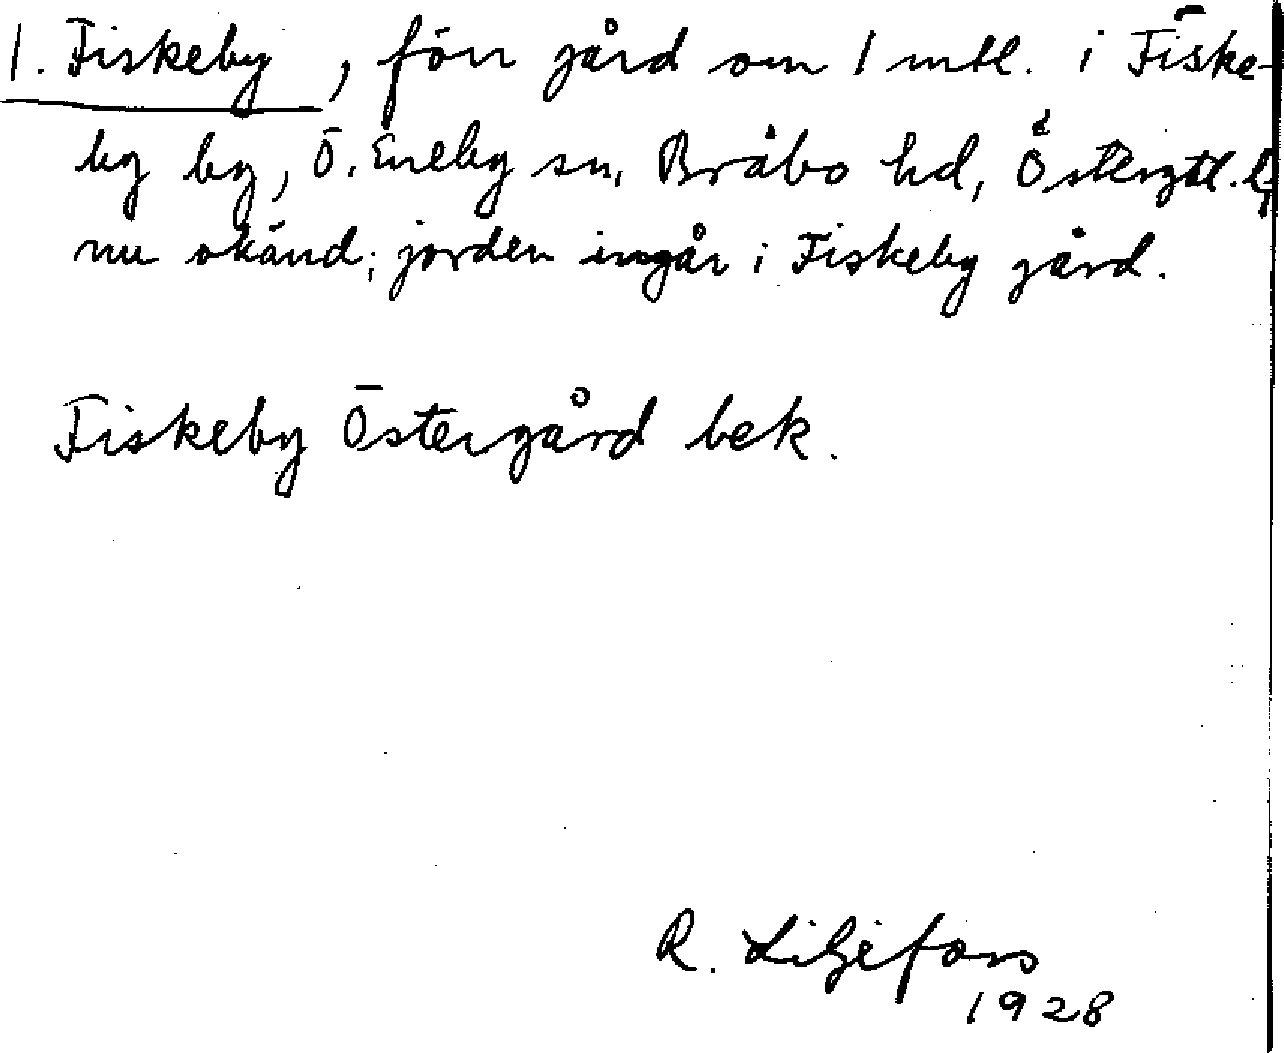 1. Fiskeby, förr gård om 1 mtl. i Fiske-
by by, Ö. Eneby sn, Bråbo hd, Östergtl. l,
nu okänd; jorden ingår i Fiskeby gård.
Fiskeby Östergård bek.
R. Liljefors
1928